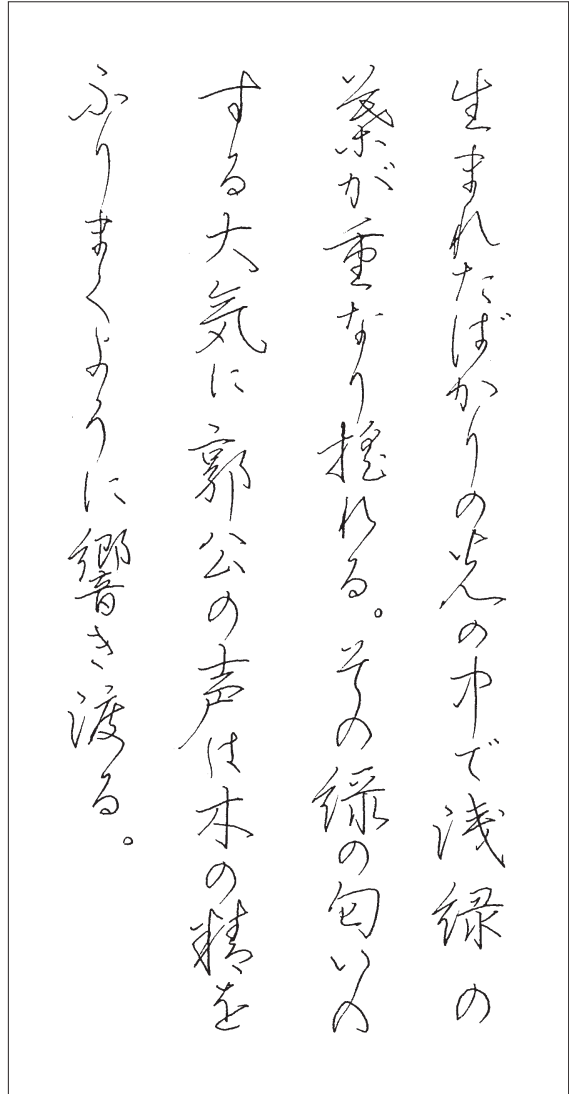 生まれたばかりの光の中で浅緑の
葉が重なり揺れる。その緑の匂いの
する大気に郭公の声は木の精を
ふりまくように響き渡る。